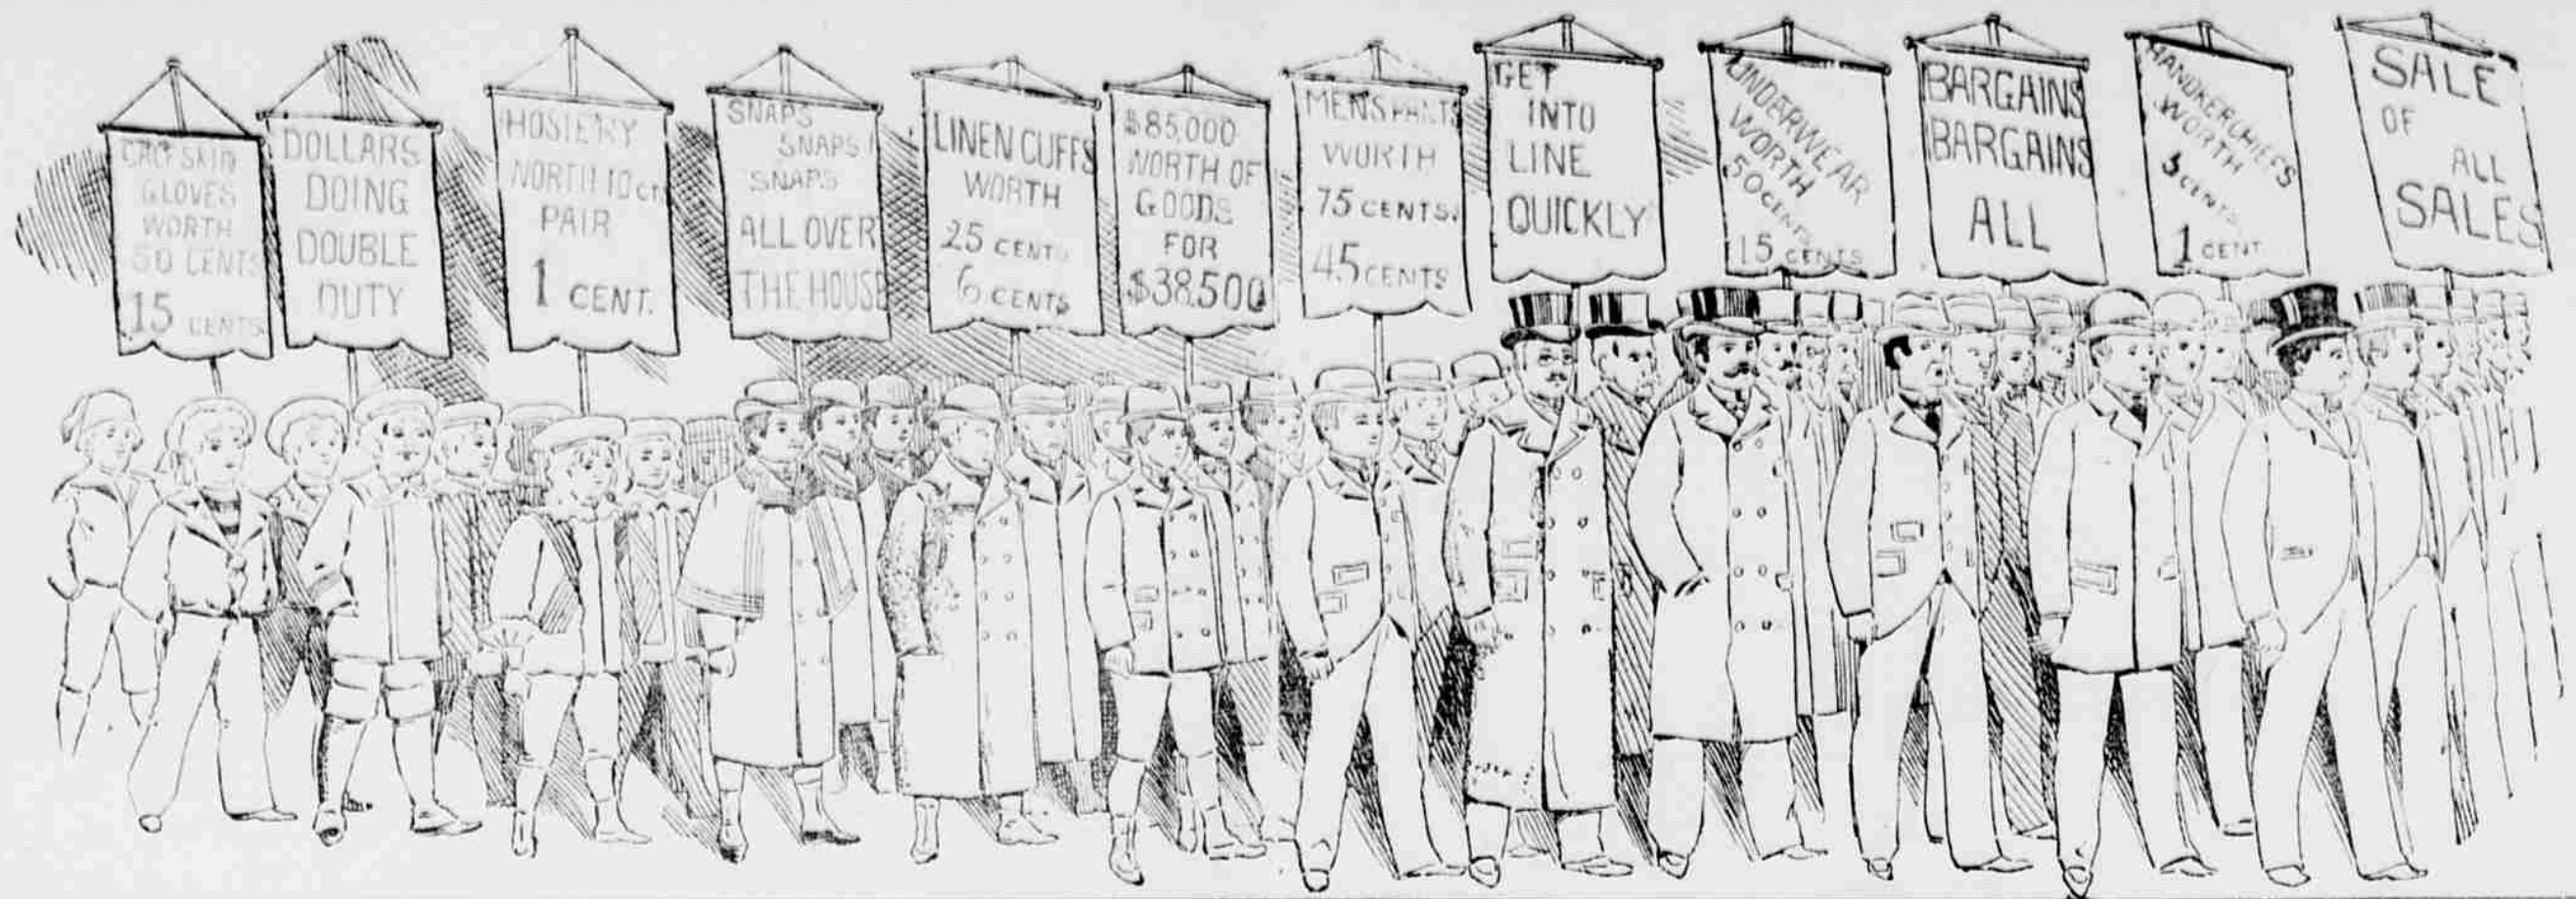 CALF SKIN
GLOVES
WORTH
50 CENTS
15 CENTS
DOLLARS
DOING
DOUBLE
DUTY
HOSIERY
WORTH 10 CTS
PAIR
1 CENT.
SNAPS
SNAPS!
SNAPS
ALL OVER
THE HOUSE
LINEN CUFFS
WORTH
25 CENTS
6 CENTS
$85,000
WORTH OF
GOODS
FOR
$38,500
MENS PANTS
WORTH
75 CENTS.
45 CENTS
GET
INTO
LINE
QUICKLY
UNDERWEAR
WORTH
50 CENTS
15 CENTS
BARGAINS
BARGAINS
ALL
HANDKERCHIEFS
WORTH
CENTS
1 CENT
SALE
OF
ALL
SALES